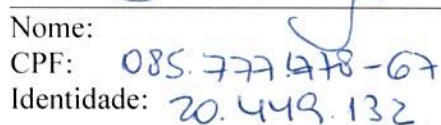 Nome:
CPF: 085.777.478-67
Identidade: 20.449.132